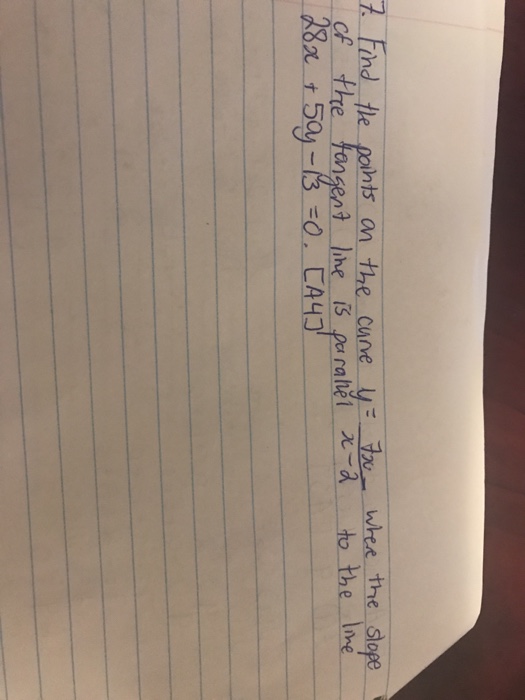 7. Find the points on the curve y = 7x/x-2 where the slope
of the tangent line is parallel to the line
28x + 50y - 13 = 0. [A4]